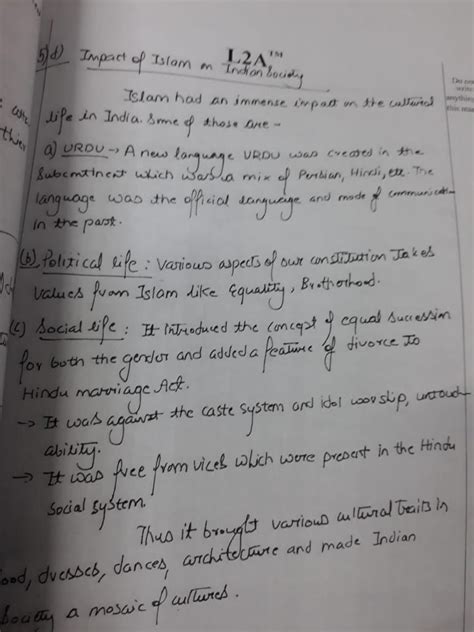 L2A™
5)d) Impact of Islam on Indian Society
Islam had an immense impact on the cultural
life in India. Some of those are -
a) URDU → A new language URDU was created in the
Subcontinent which was a mix of Persian, Hindi, etc. The
language was the official language and mode of communication
in the past.
(b) Political life : Various aspects of our constitution takes
values from Islam like Equality, Brotherhood.
(c) Social life : It introduced the concept of equal succession
for both the gender and added a feature of divorce to
Hindu marriage Act.
→ It was against the caste system and idol worship, untouch
ability.
→ It was free from vices which were present in the Hindu
social system.
Thus it brought various cultural traits in
food, dresses, dances, architecture and made Indian
Society a mosaic of cultures.